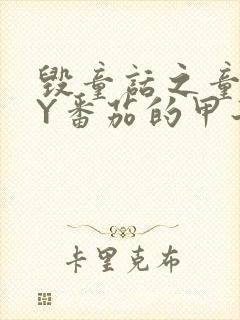 毁童话之童
Y番茄的甲
卡里克布